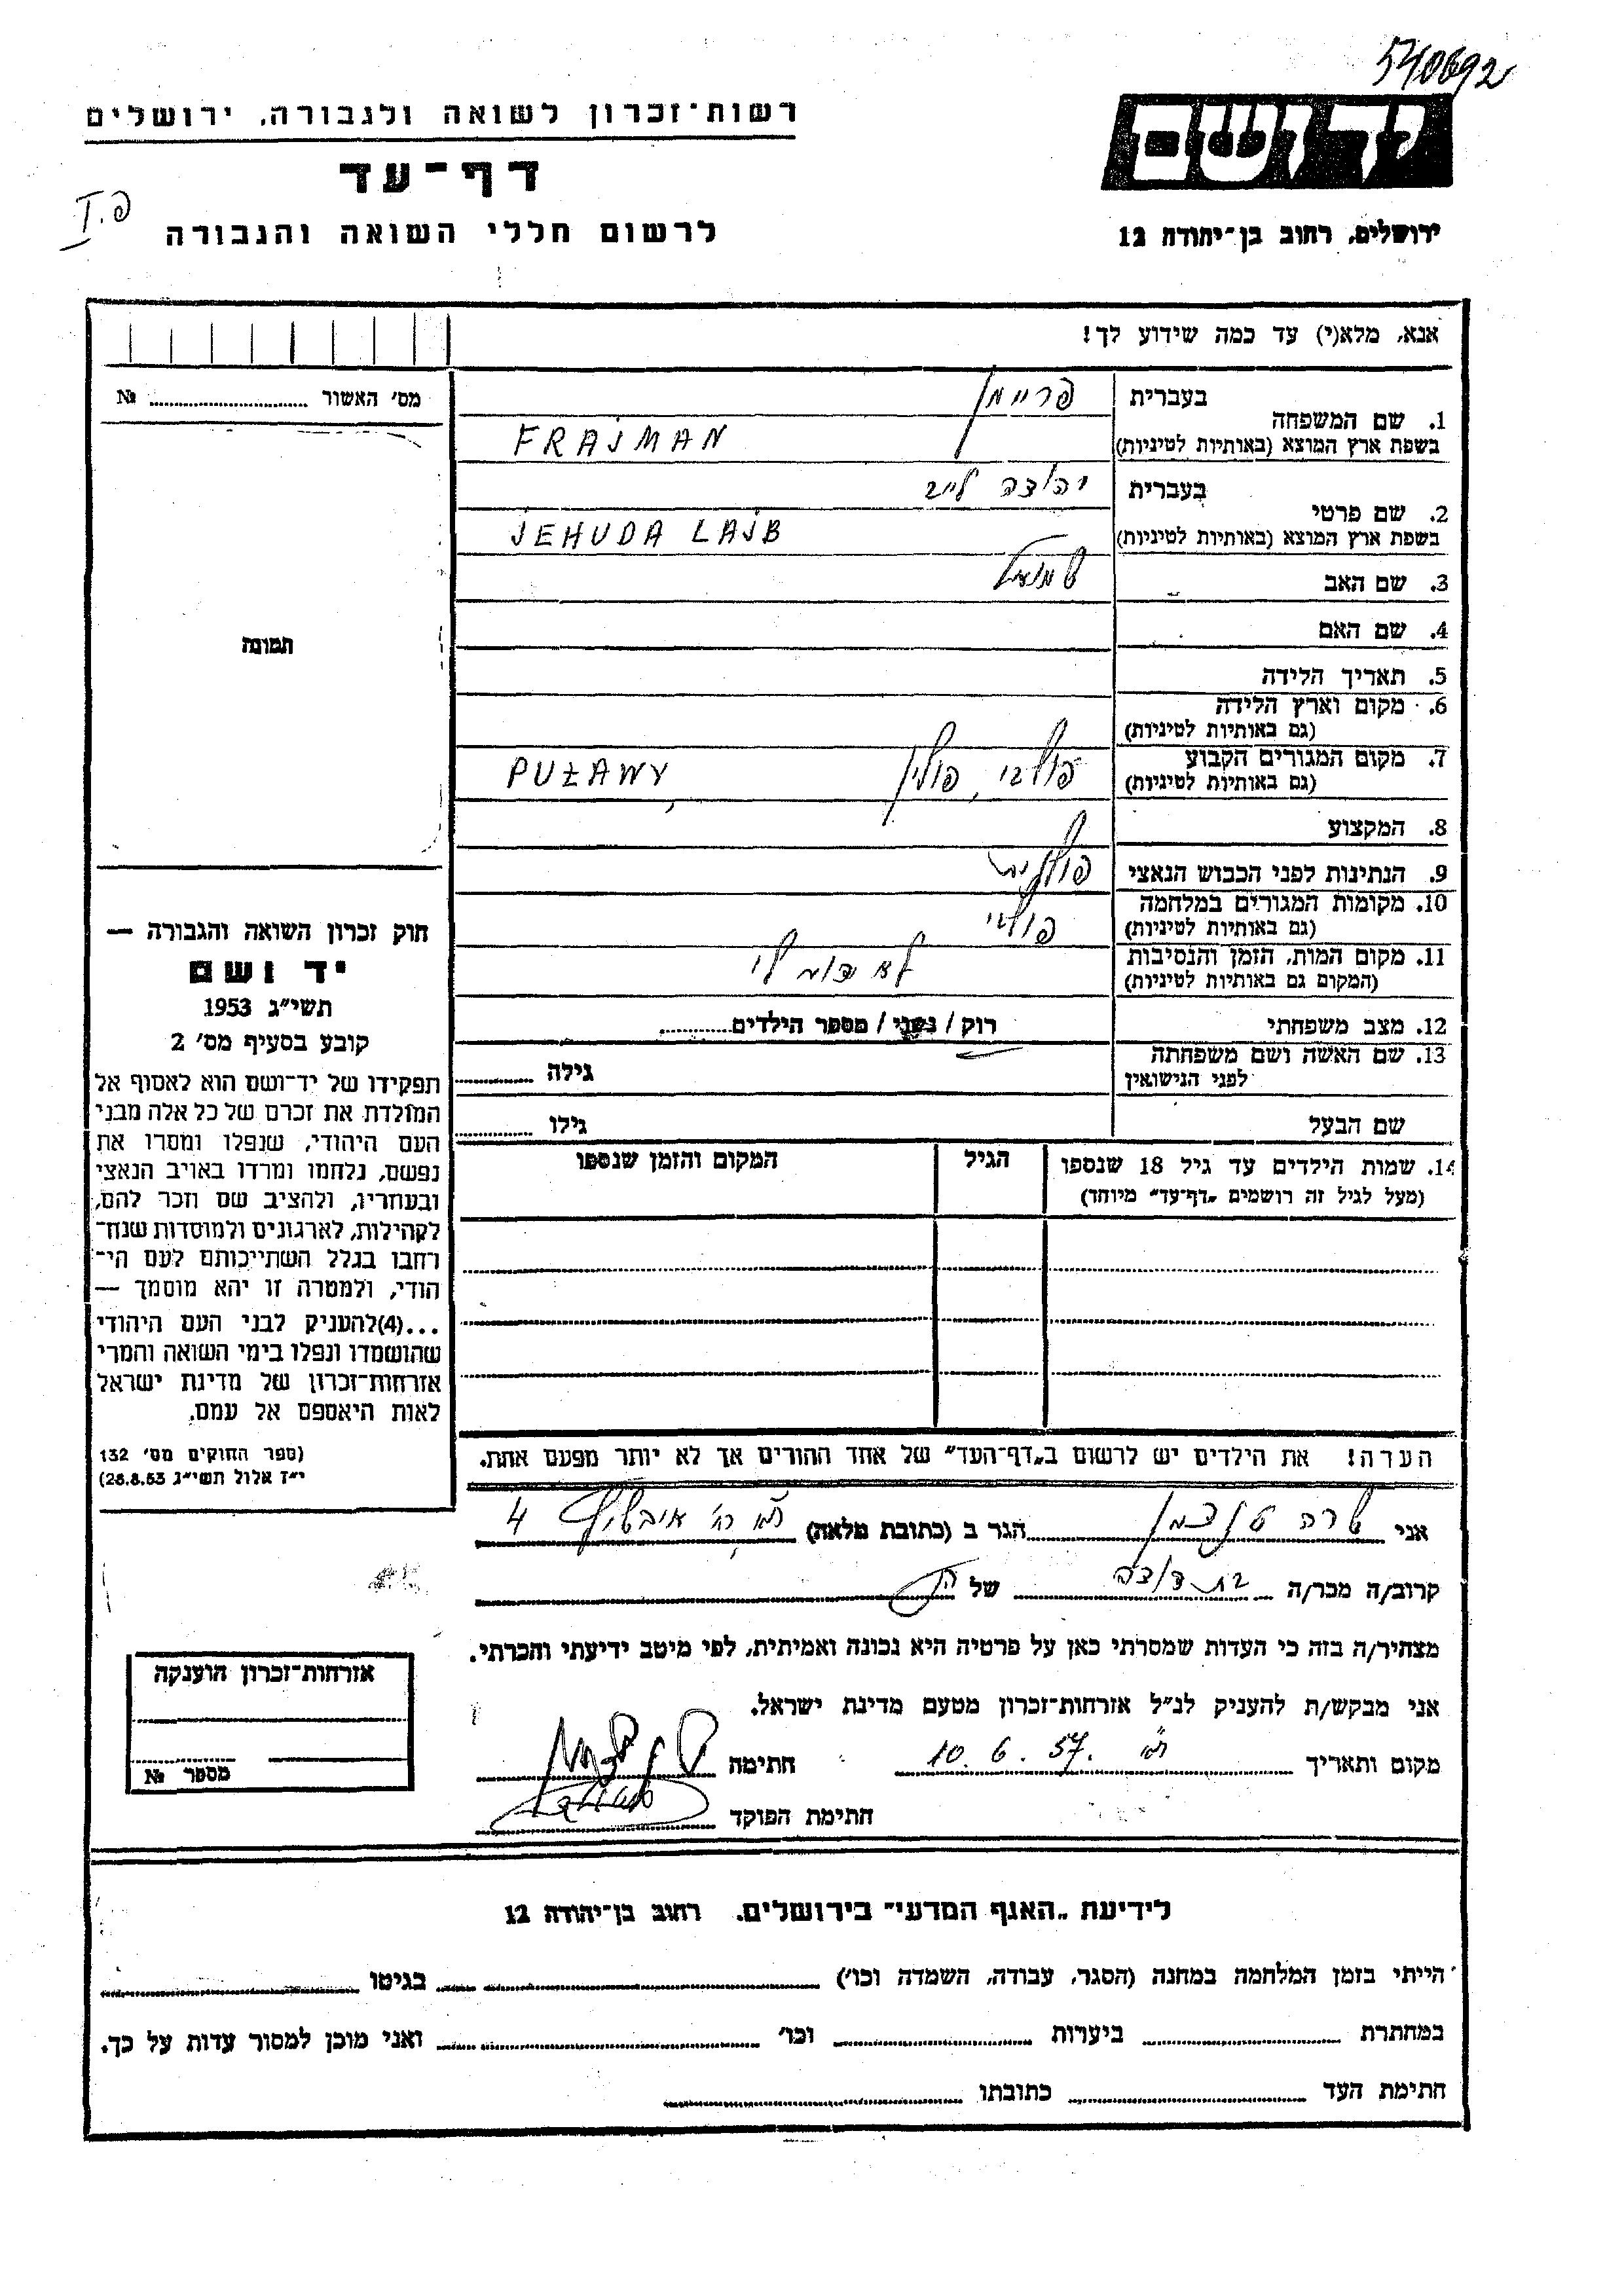 540692
רשות־זכרון לשואה ולגבורה, ירושלים
יד ושם
דף־עד
פ.I
לרשום חללי השואה והגבורה
ירושלים, רחוב בן־יהודה 12
אנא, מלא(י) עד כמה שידוע לך!
מס' האשור № ........
בעברית פריימן
1. שם המשפחה
בשפת ארץ המוצא (באותיות לטיניות) FRAJMAN
בעברית יהודה לייב
2. שם פרטי
בשפת ארץ המוצא (באותיות לטיניות) JEHUDA LAJB
3. שם האב שמואל
4. שם האם
תמונה
5. תאריך הלידה
6. מקום וארץ הלידה
(גם באותיות לטיניות)
7. מקום המגורים הקבוע פולבי, פולין PUŁAWY
(גם באותיות לטיניות)
8. המקצוע
9. הנתינות לפני הכבוש הנאצי פולנית
10. מקומות המגורים במלחמה פולבי
(גם באותיות לטיניות)
11. מקום המות, הזמן והנסיבות לא ידוע לי
(המקום גם באותיות לטיניות)
12. מצב משפחתי רוק / נשוי / מספר הילדים........
13. שם האשה ושם משפחתה
לפני הנישואין גילה ........
שם הבעל גילו ........
14. שמות הילדים עד גיל 18 שנספו הגיל המקום והזמן שנספו
(מעל לגיל זה רושמים „דף־עד" מיוחד)
חוק זכרון השואה והגבורה —
יד ושם
תשי"ג 1953
קובע בסעיף מס' 2
תפקידו של יד־ושם הוא לאסוף אל
המולדת את זכרם של כל אלה מבני
העם היהודי, שנפלו ומסרו את
נפשם, נלחמו ומרדו באויב הנאצי
ובעוזריו, ולהציב שם וזכר להם,
לקהילות, לארגונים ולמוסדות שנח־
רחבו בגלל השתייכותם לעם הי־
הודי, ולמטרה זו יהא מוסמך —
...(4)להעניק לבני העם היהודי
שהושמדו ונפלו בימי השואה והמרי
אזרחות־זכרון של מדינת ישראל
לאות היאספם אל עמם.
(ספר החוקים מס' 132
י"ז אלול תשי"ג 28.8.53)
הערה! את הילדים יש לרשום ב„דף־העד" של אחד ההורים אך לא יותר מפעם אחת.
אני שרה הגר ב (כתובת מלאה) רח' 4
קרוב/ה מכר/ה בת דודה של הנ"ל
מצהיר/ה בזה כי העדות שמסרתי כאן על פרטיה היא נכונה ואמיתית, לפי מיטב ידיעתי והכרתי.
אני מבקש/ת להעניק לנ"ל אזרחות־זכרון מטעם מדינת ישראל.
מקום ותאריך 10.6.57. חתימה
חתימת הפוקד
אזרחות־זכרון הוענקה
מספר №
לידיעת „האגף המדעי" בירושלים, רחוב בן־יהודה 12
הייתי בזמן המלחמה במחנה (הסגר, עבודה, השמדה וכו') ........ בגיטו ........
במחתרת ........ ביערות ........ וכו' ........ ואני מוכן למסור עדות על כך.
חתימת העד ........ כתובתו ........